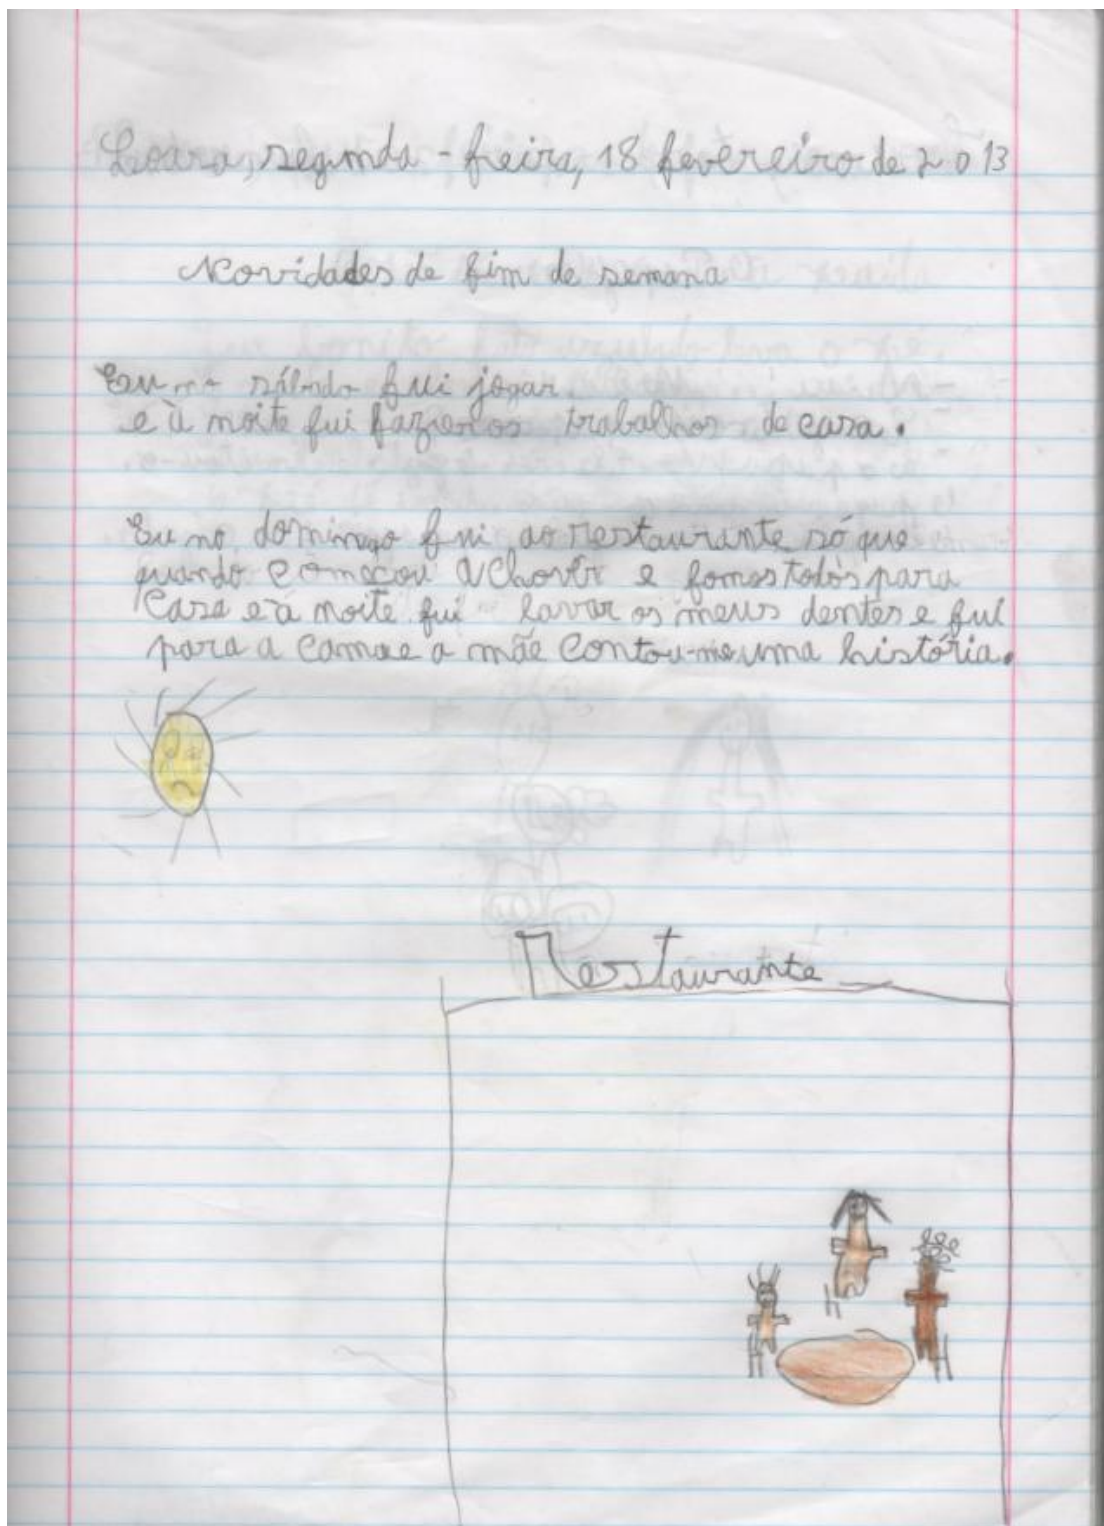 Loara, segunda - freira, 18 fevereiro de 2013
Novidades de fim de semana
Eu no sábado fui jogar
e à noite fui fazer os trabalhos de casa.
Eu no domingo fui ao restaurante só que
quando começou a chover e fomos todos para
casa e à noite fui lavar os meus dentes e fui
para a cama e a mãe contou-me uma história.
Restaurante